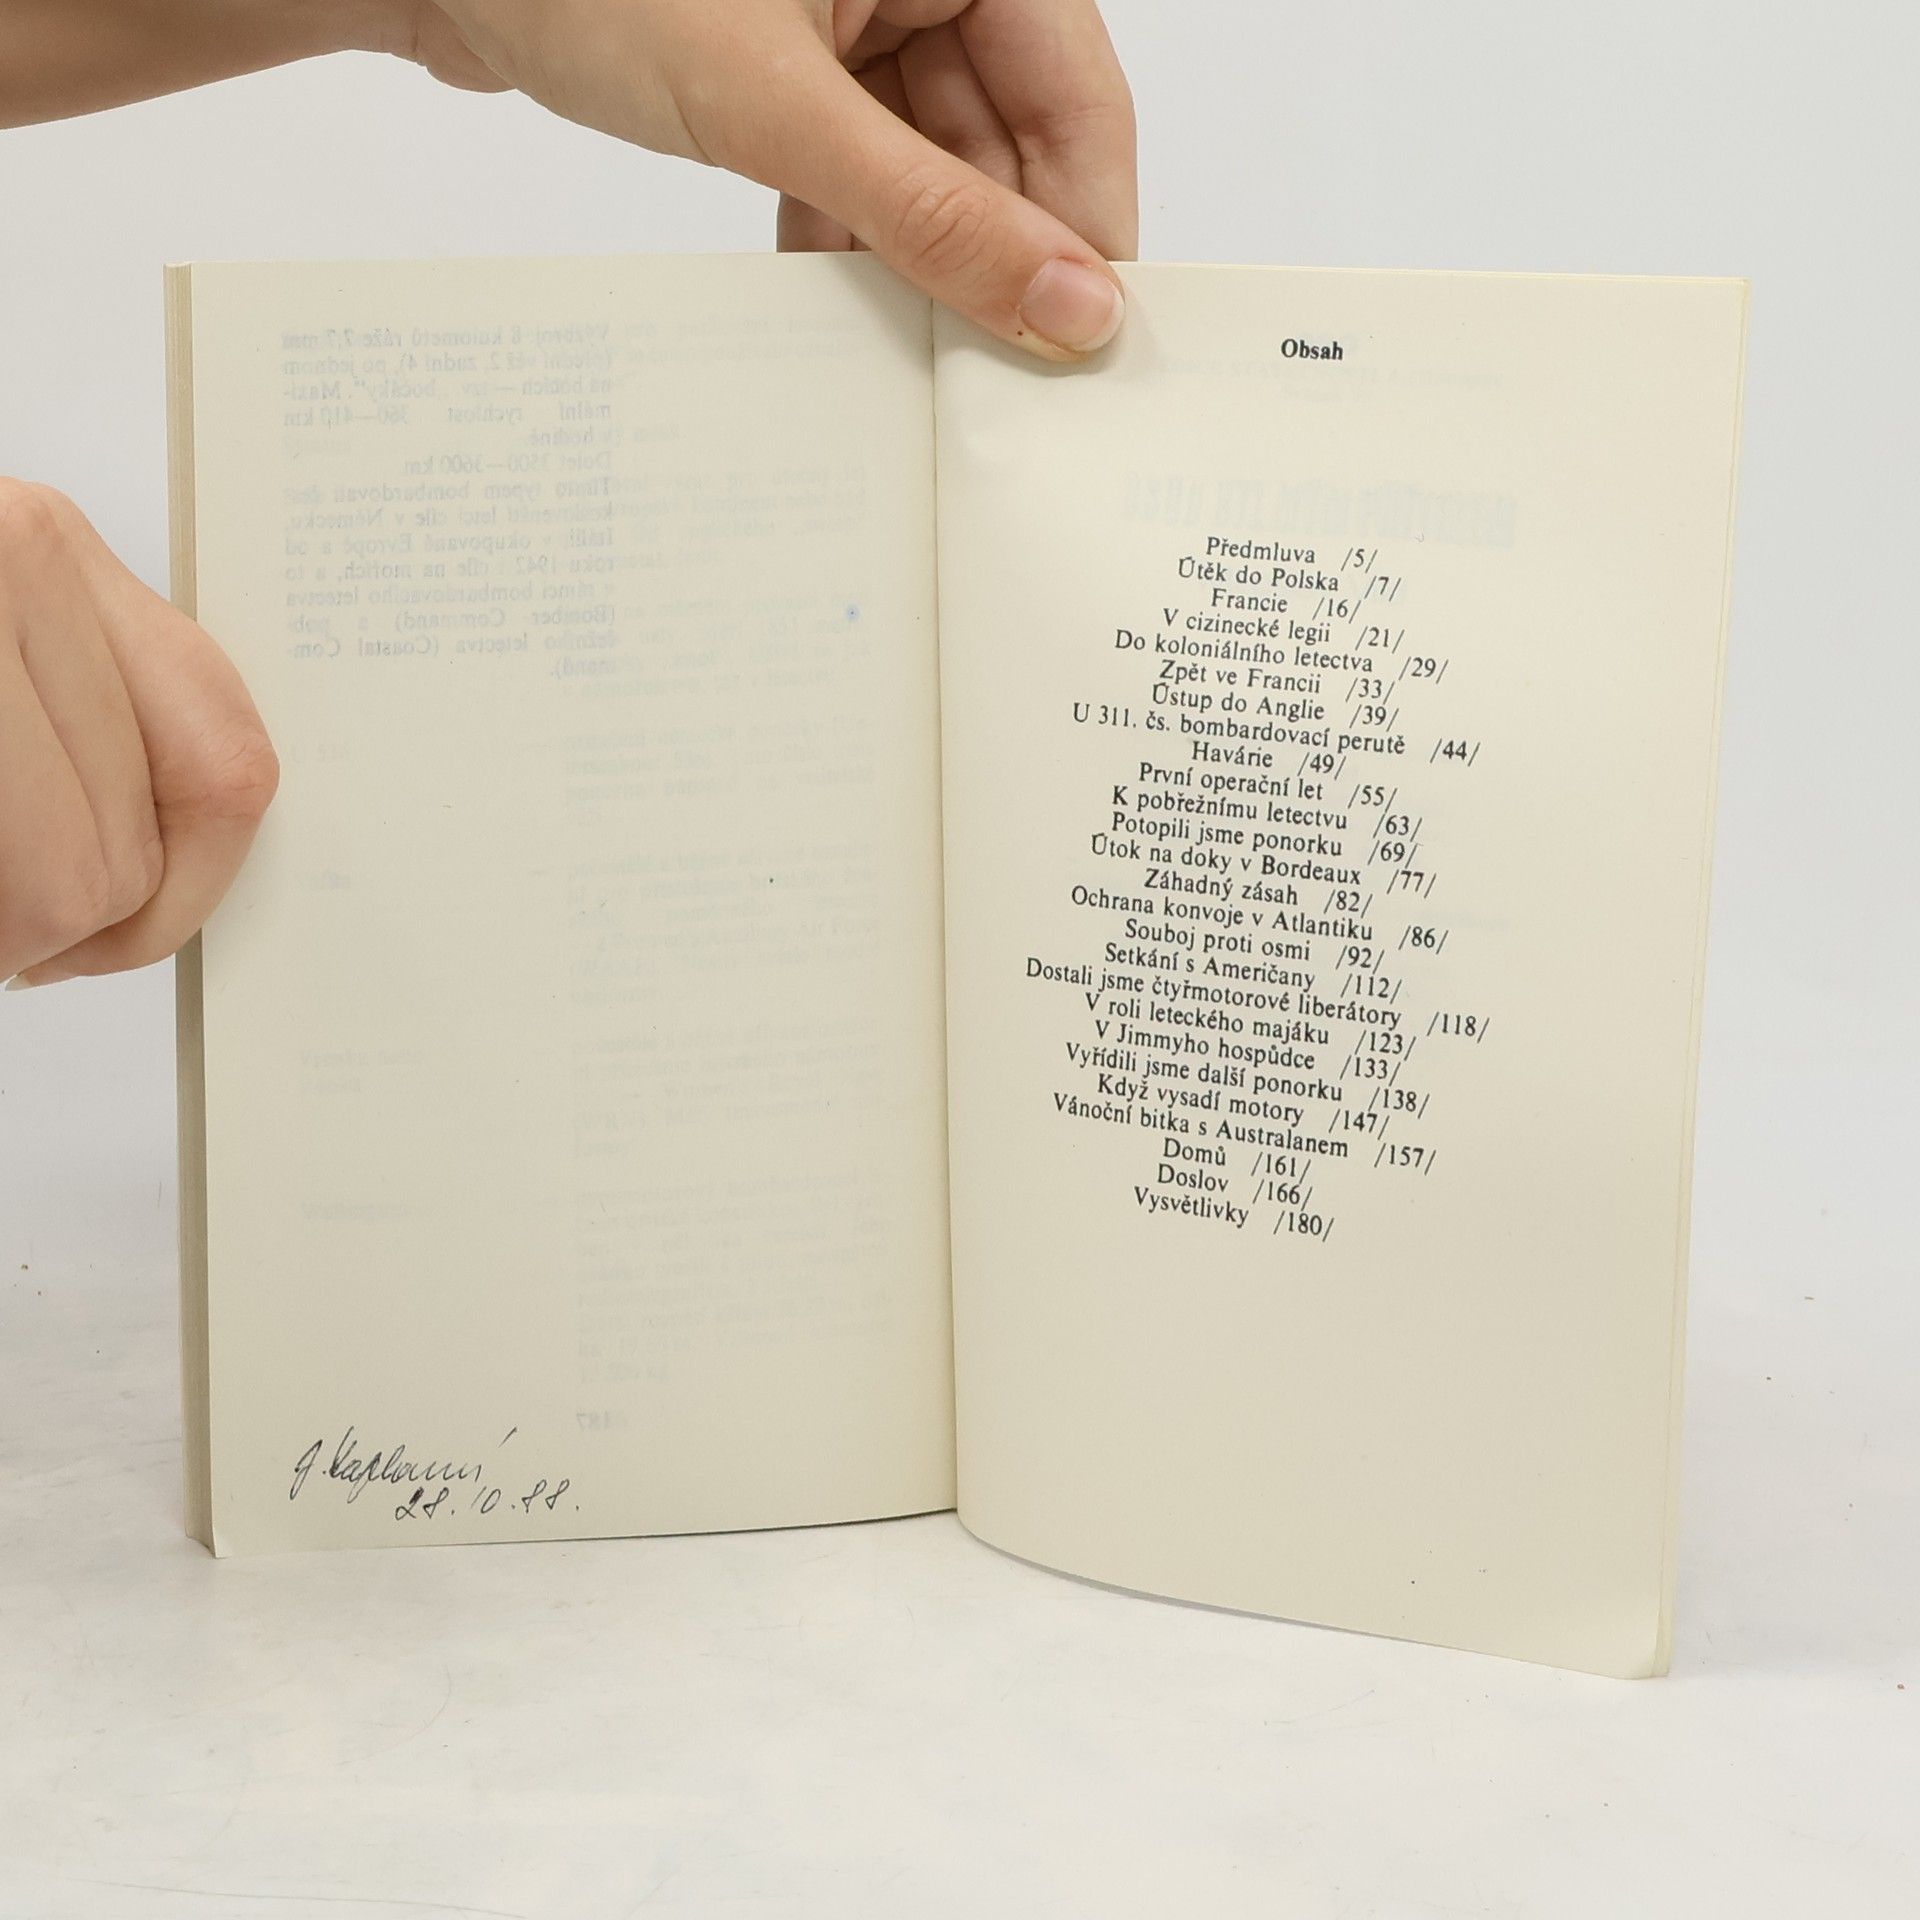 J. Kaplanní
28.10.88.
Obsah
Předmluva /5/
Útěk do Polska /7/
Francie /16/
V cizinecké legii /21/
Do koloniálního letectva /29/
Zpět ve Francii /33/
Ústup do Anglie /39/
U 311. čs. bombardovací perutě /44/
Havárie /49/
První operační let /55/
K pobřežnímu letectvu /63/
Potopili jsme ponorku /69/
Útok na doky v Bordeaux /77/
Záhadný zásah /82/
Ochrana konvoje v Atlantiku /86/
Souboj proti osmi /92/
Setkání s Američany /112/
Dostali jsme čtyřmotorové liberátory /118/
V roli leteckého majáku /123/
V Jimmyho hospůdce /133/
Vyřídili jsme další ponorku /138/
Když vysadí motory /147/
Vánoční bitka s Australanem /157/
Domů /161/
Doslov /166/
Vysvětlivky /180/